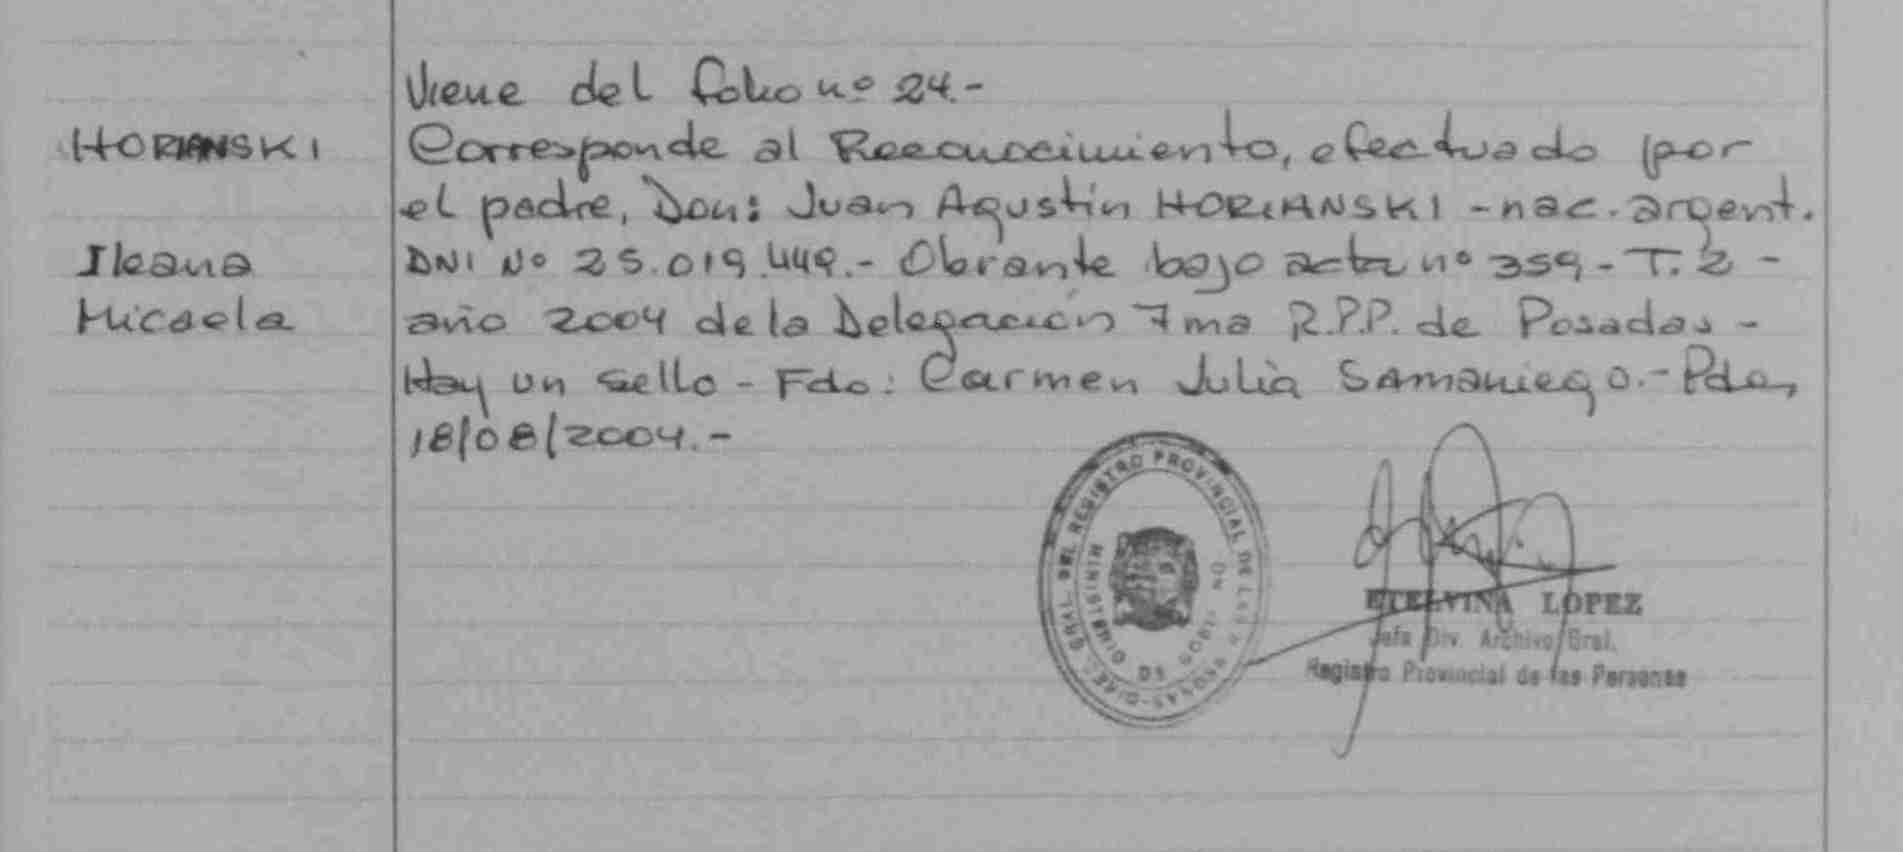 Viene del folio nº 24.-
HORIANSKI
Corresponde al Reconocimiento, efectuado por
el padre, Don: Juan Agustín HORIANSKI - nac. argent.
Ileana
DNI Nº 25.019.449.- Obrante bajo acta nº 359 - T. 2 -
Micaela
año 2004 de la Delegación 7ma R.P.P. de Posadas -
Hay un sello - Fdo: Carmen Julia Samaniego.- Pdas,
18/08/2004.-
DIREC. GRAL. DEL REGISTRO PROVINCIAL DE LAS PERSONAS
MINISTERIO DE GOBIERNO
ETELVINA LOPEZ
Jefa Div. Archivo Gral.
Registro Provincial de las Personas